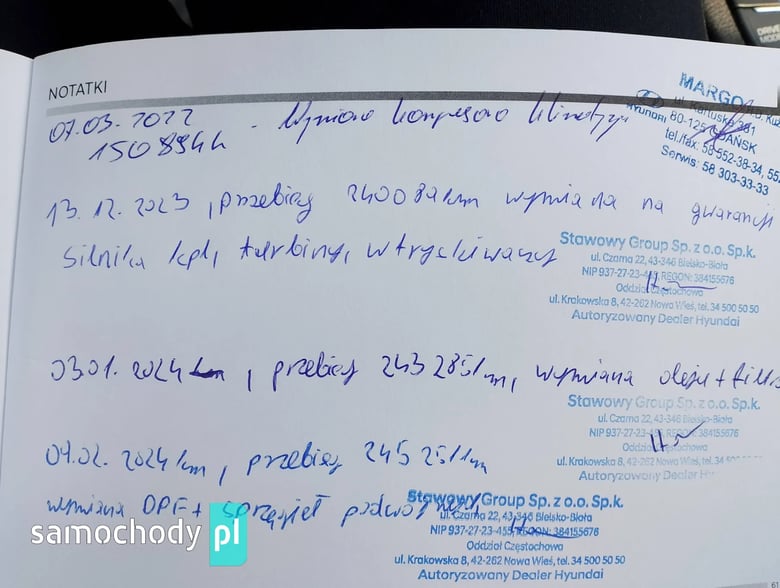 NOTATKI
07.03.2022 - Wymiana kompresora klimatyzacji
150894h
MARGO
ul. Kartuska 381
80-125 GDAŃSK
tel./fax: 58 552-38-34, 55
Serwis: 58 303-33-33
Hyundai
13.12.2023, przebieg 240084km wymiana na gwarancji
silnika kpl, turbiny, wtryskiwaczy
Stawowy Group Sp. z o.o. Sp.k.
ul. Czarna 22, 43-346 Bielsko-Biała
NIP 937-27-23-4, REGON: 384155676
Oddział Częstochowa
ul. Krakowska 8, 42-262 Nowa Wieś, tel. 34 500 50 50
Autoryzowany Dealer Hyundai
03.01.2024km, przebieg 243285km, wymiana oleju + filtr
Stawowy Group Sp. z o.o. Sp.k.
ul. Czarna 22, 43-346 Bielsko-Biała
NIP 937-27-23-4, REGON: 384155676
Oddział Częstochowa
ul. Krakowska 8, 42-262 Nowa Wieś, tel. 34
Autoryzowany Dealer Hy
09.02.2024km, przebieg 245251km
wymiana DPF + sprzęgieł podwójnych
Stawowy Group Sp. z o.o. Sp.k.
ul. Czarna 22, 43-346 Bielsko-Biała
NIP 937-27-23-455, REGON: 384155676
Oddział Częstochowa
ul. Krakowska 8, 42-262 Nowa Wieś, tel. 34 500 50 50
Autoryzowany Dealer Hyundai
samochody pl
61